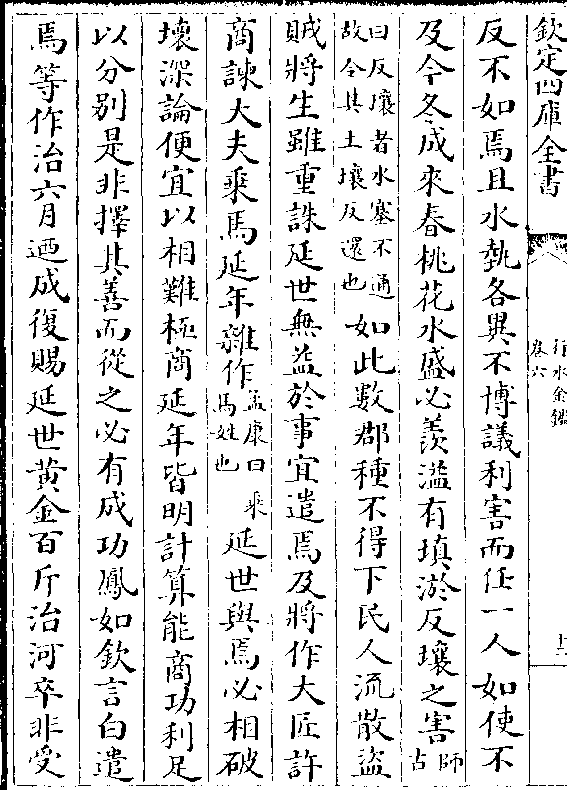 欽定四庫全書
行水金鑑
卷六
反不如焉且水埶各異不博議利害而任一人如使不
及今冬成來春桃花水盛必羨溢有填淤反壤之害師古
曰反壤者水塞不通故令其土壤反還也如此數郡種不得下民人流散盜
賊將生雖重誅延世無益於事宜遣焉及將作大匠許
商諫大夫乘馬延年雜作孟康曰乘馬姓也延世與焉必相破
壞深論便宜以相難極商延年皆明計算能商功利足
以分别是非擇其善而從之必有成功鳳如欽言白遣
焉等作治六月迺成復賜延世黄金百斤治河卒非受